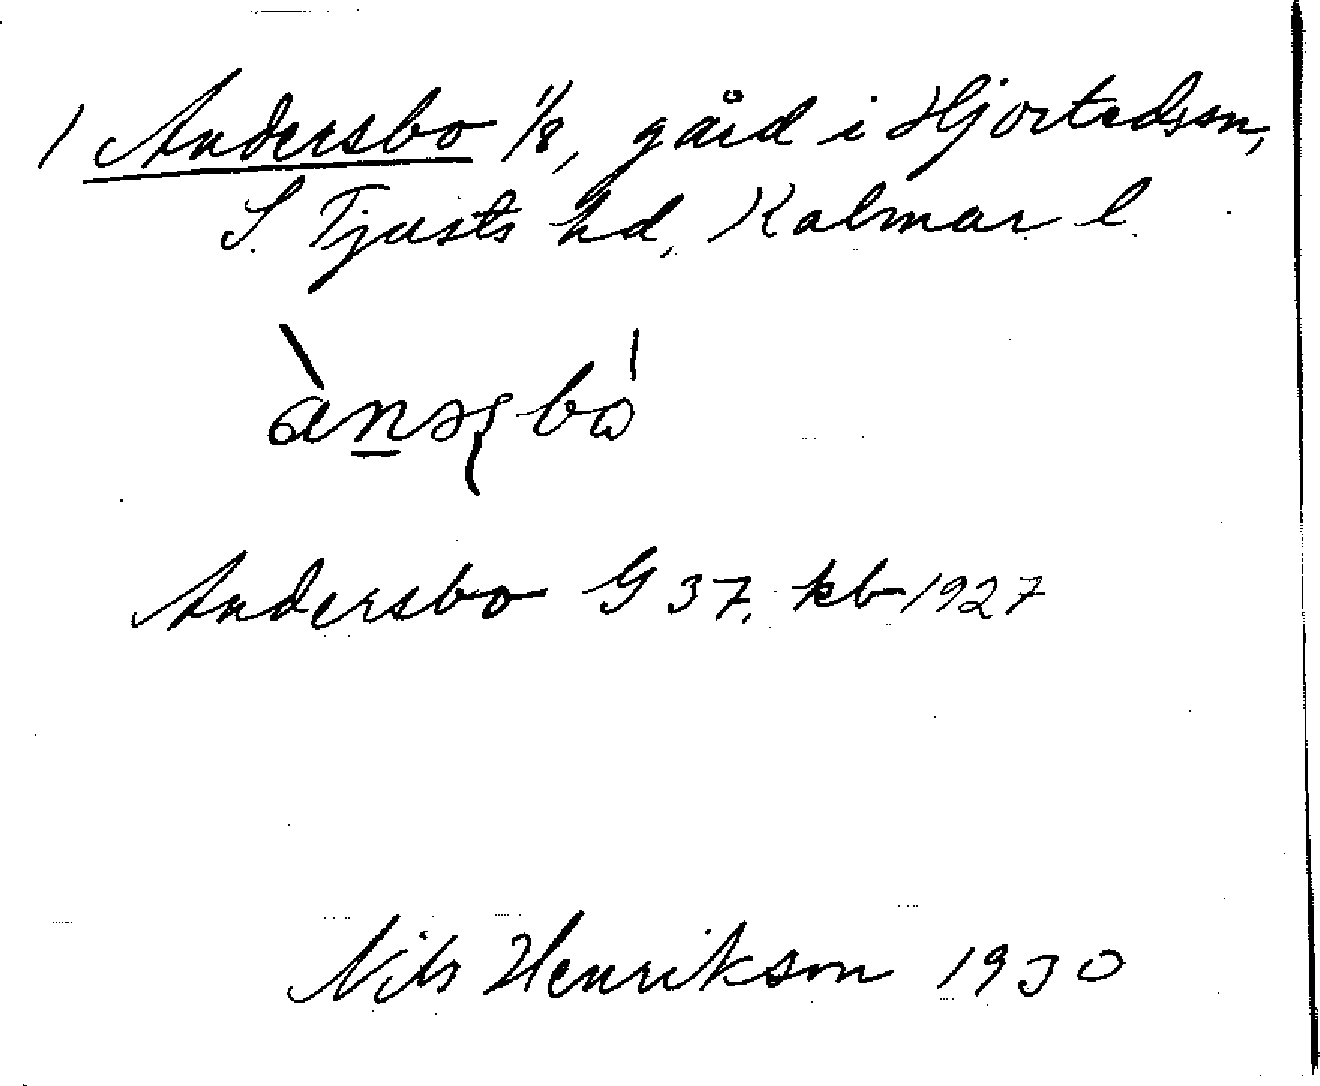 1 Andersbo 1/8, gård i Hjorteds sn,
S. Tjusts hd, Kalmar l.
Andersbo G 37. kb 1927
Nils Henrikson 1930